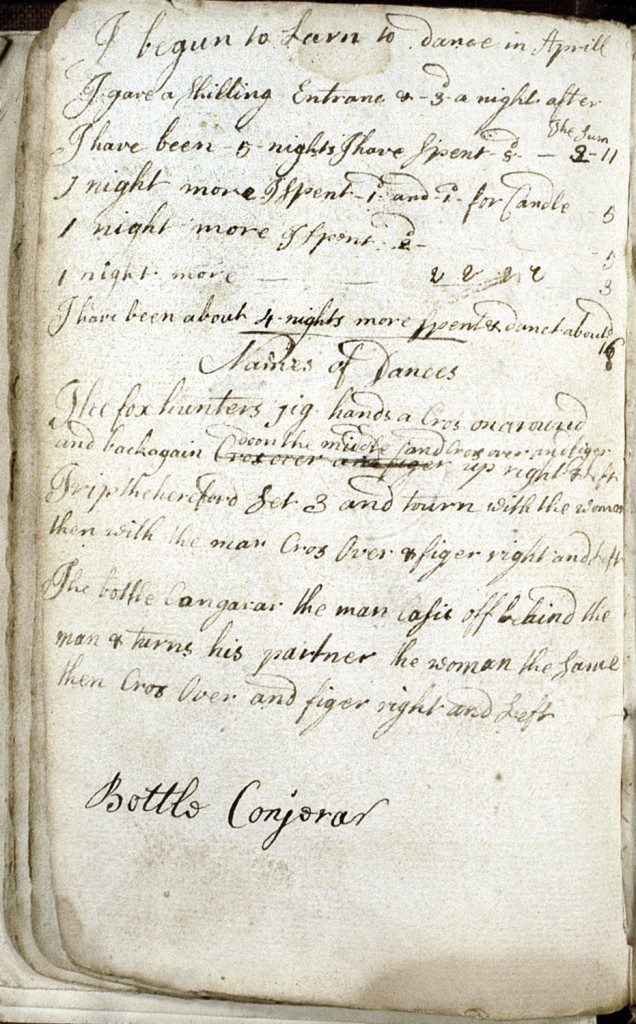 I begun to Larn to dance in Aprill
I gave a Shilling Entranc & -3d- a night after
The Sum
I have been -5- nights I have Spent - 2-11
1 night more I Spent -1d- and -1d- for Candle - 5
1 night more I Spent -2d- 5
1 night more 2 2 2 2 3
I have been about 4 nights more spent & danct about
16
8
Names of Dances
The fox hunters jig hands a Cros once round
and back again down the midle Cros over and figer
Cros over and figer up right & Left
Trip the hereford Set 3 and tourn with the woman
then with the man Cros Over & figer right and Left
The bottle Cangarar the man Casts off behind the
man & turns his partner the woman the Same
then Cros Over and figer right and Left
Bottle Conjerar